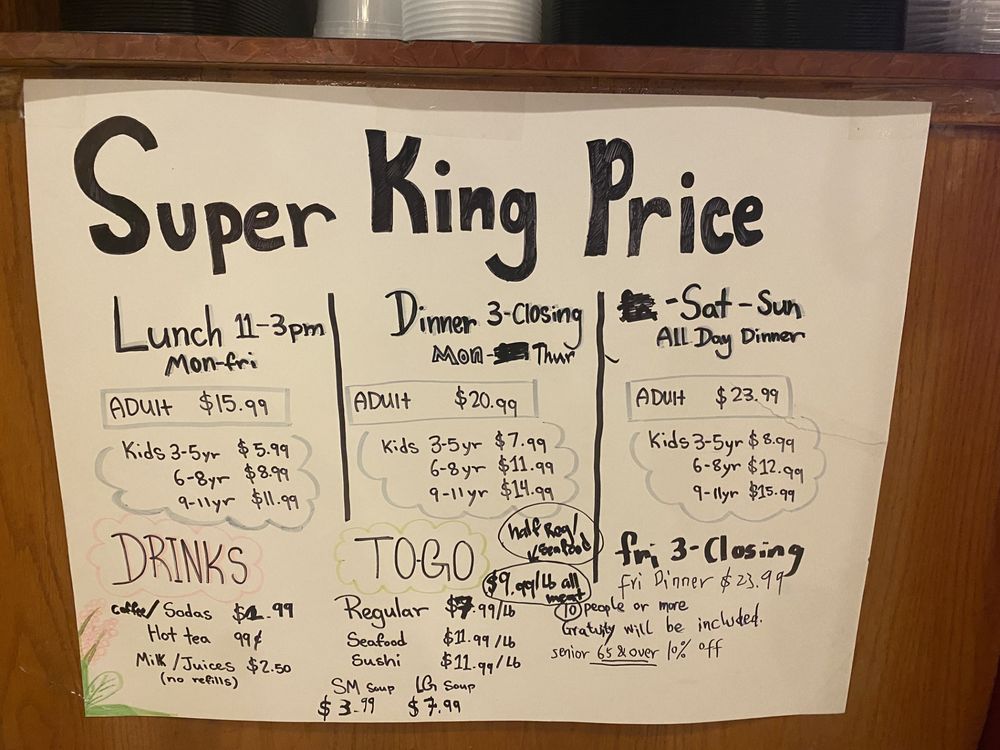 Super King Price
Lunch 11-3pm
Mon-fri
ADUlt $15.99
Kids 3-5yr $5.99
6-8yr $8.99
9-11yr $11.99
Dinner 3-Closing
Mon- Thur
ADUlt $20.99
Kids 3-5yr $7.99
6-8yr $11.99
9-11yr $14.99
-Sat-Sun
All Day Dinner
ADUlt $23.99
Kids 3-5yr $8.99
6-8yr $12.99
9-11yr $15.99
DRINKS
coffee/Sodas .99
Hot tea 99¢
Milk/Juices $2.50
(no refills)
TO-GO
half Reg/
Seafood
$9.99/Lb all
meat
Regular $7.99/Lb
Seafood $11.99/Lb
Sushi $11.99/Lb
SM Soup LG Soup
$3.99 $7.99
fri 3-Closing
fri Dinner $23.99
10 people or more
Gratuity will be included.
senior 65 & over 10% off